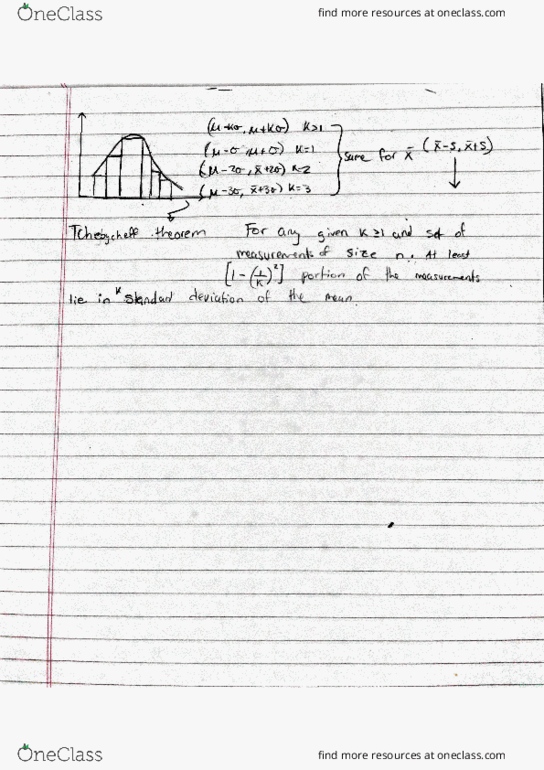 OneClass find more resources at oneclass.com
(μ-kσ, μ+kσ) k≥1
(μ-σ, μ+σ) k=1
(μ-2σ, x̄+2σ) k=2
(μ-3σ, x̄+3σ) k=3
same for x̄ (x̄-s, x̄+s)
Tchebycheff theorem For any given k≥1 and set of
measurements of size n. At least
[1-(1/k)²] portion of the measurements
lie in k standard deviation of the mean.
OneClass find more resources at oneclass.com